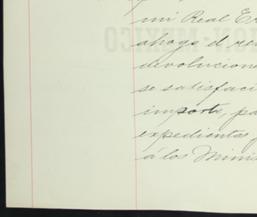 mi Real
ahogo el
devolucione
se satisfaci
importe, pa
expedientes
á los Minis